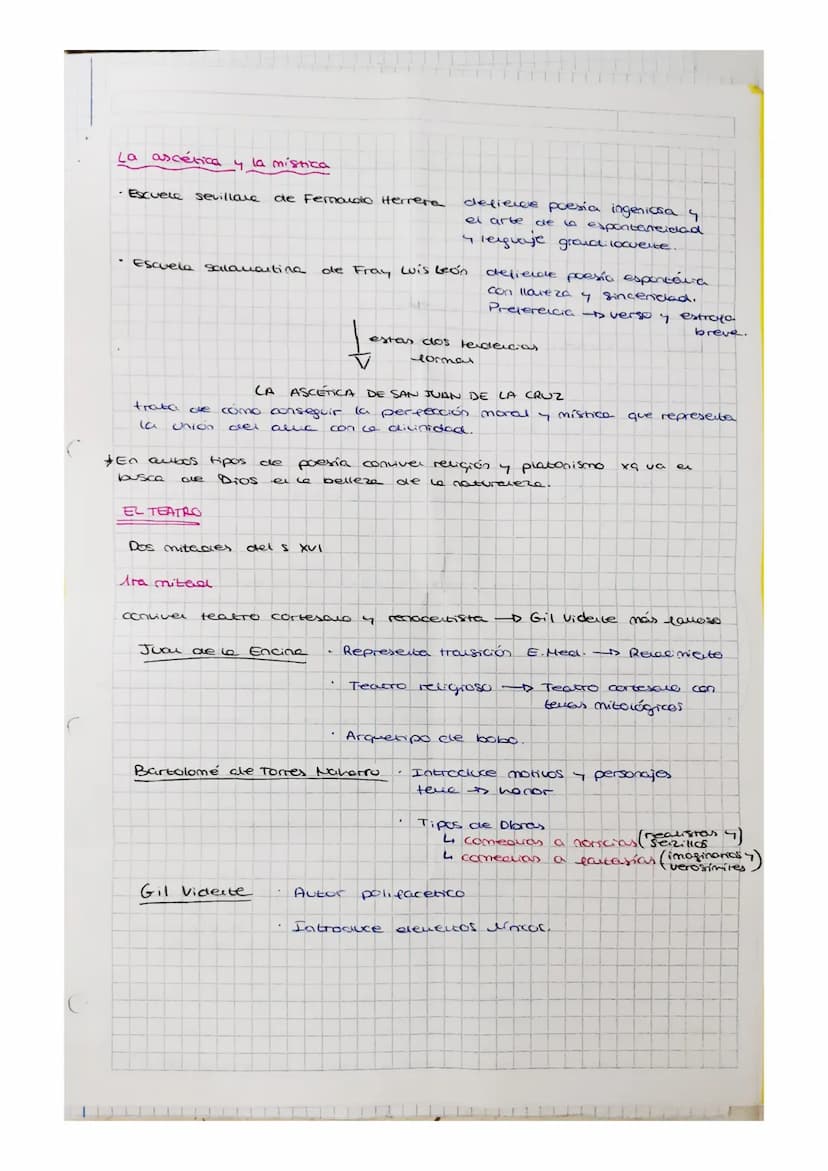 La ascética y la mística
· Escuela sevillana de Fernando Herrera defiende poesía ingeniosa y
el arte de la espontaneidad
y lenguaje grandilocuente.
· Escuela salamantina de Fray Luis León defiende poesía espontánea
con llaneza y sinceridad.
Preferencia → verso y estrofa
breve.
estas dos tendencias
forman
LA ASCÉTICA DE SAN JUAN DE LA CRUZ
trata de cómo conseguir la perfección moral y mística que representa
la unión del alma con la divinidad.
→En ambos tipos de poesía conviven religión y platonismo xq va en
busca de Dios en la belleza de la naturaleza.
EL TEATRO
Dos mitades del s XVI
1ra mitad
conviven teatro cortesano y renacentista → Gil Vidente más famoso
Juan de la Encina · Representa transición E.Med. → Renacimiento
· Teatro religioso → Teatro cortesano con
temas mitológicos
· Arquetipo de bobo.
Bartolomé de Torres Navarro · Introduce motivos y personajes
tema → honor
· Tipos de Obras
↳ comedias a noticias (realistas y
sezillos)
↳ comedias a fantasías (imaginarios y
verosímiles)
Gil Vidente · Autor polifacético
· Introduce elementos líricos.